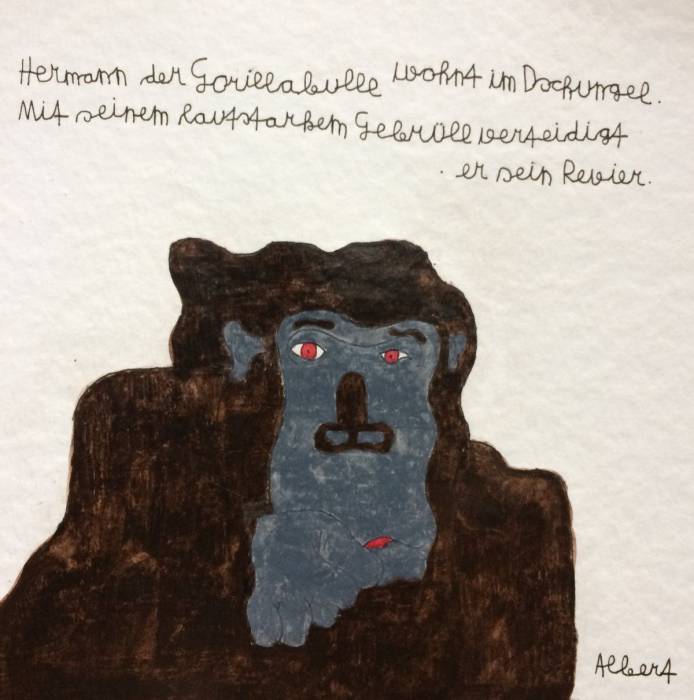 Hermann der Gorillabulle wohnt im Dschungel.
Mit seinem lautstarkem Gebrüll verteidigt
er sein Revier.
Albert